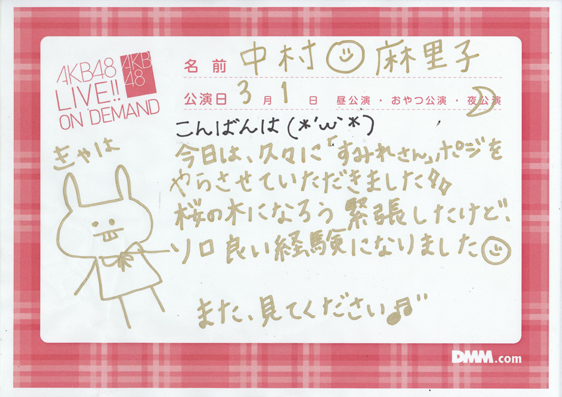 AKB48
LIVE!!
ON DEMAND
AKB
48
名前 中村 麻里子
公演日 3月1日 昼公演・おやつ公演・夜公演
こんばんは(*'ω'*)
きゃは
今日は、久々に「すみれさん」ポジを
やらさせていただきました
桜の木になろう 緊張したけど、
ソロ良い経験になりました
また、見てください♬"
DMM.com